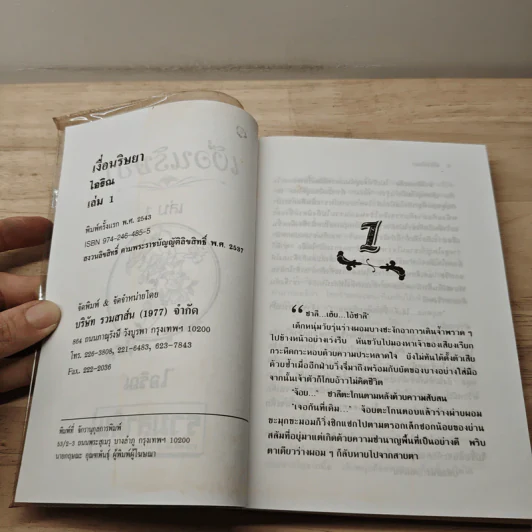 เงื่อนริษยา
โสธิณ
เล่ม 1
พิมพ์ครั้งแรก พ.ศ. 2543
ISBN 974-246-485-5
สงวนลิขสิทธิ์ ตามพระราชบัญญัติลิขสิทธิ์ พ.ศ. 2537
จัดพิมพ์ & จัดจำหน่ายโดย
บริษัท รวมสาส์น (1977) จำกัด
864 ถนนภาณุรังษี วังบูรพา กรุงเทพฯ 10200
โทร. 226-3808, 221-6483, 623-7843
Fax. 222-2036
พิมพ์ที่ จักรานุกูลการพิมพ์
53/2-3 ถนนพระสุเมรุ บางลำภู กรุงเทพฯ 10200
นายกฤษณะ ผู้พิมพ์ผู้โฆษณา
1
“ชาลี...เฮ้ย...ไอ้ชาลี”
เด็กหนุ่มวัยรุ่นร่างผอมบางชะงักอาการเดินจ้ำพรวด ๆ
ไปข้างหน้าอย่างตรงรี่บ หันขวับไปมองหาเจ้าของเสียงเรียก
กะพืดกระหอบด้วยความประหลาดใจ ยังไม่ทันได้ตั้งตัวเสีย
ด้วยซ้ำเมื่ออีกฝ่ายวิ่งจี๋มาถึงพร้อมกับยัดของบางอย่างใส่มือ
จากนั้นเจ้าตัวก็โกยอ้าวไม่คิดชีวิต
“จ้อย...” ชาลีตะโกนตามหลังด้วยความสับสน
“เจอกันที่เดิม...” จ้อยตะโกนตอบแล้วร่างผ่ายผอม
ขะมุกขะมอมก็วิ่งซิกแซกไปตามตรอกเล็กซอกน้อยของย่าน
สลัมที่อยู่มาแต่เกิดด้วยความชำนาญพื้นที่เป็นอย่างดี พริบ
ตาเดียวร่างผอม ๆ ก็ลับหายไปจากสายตา